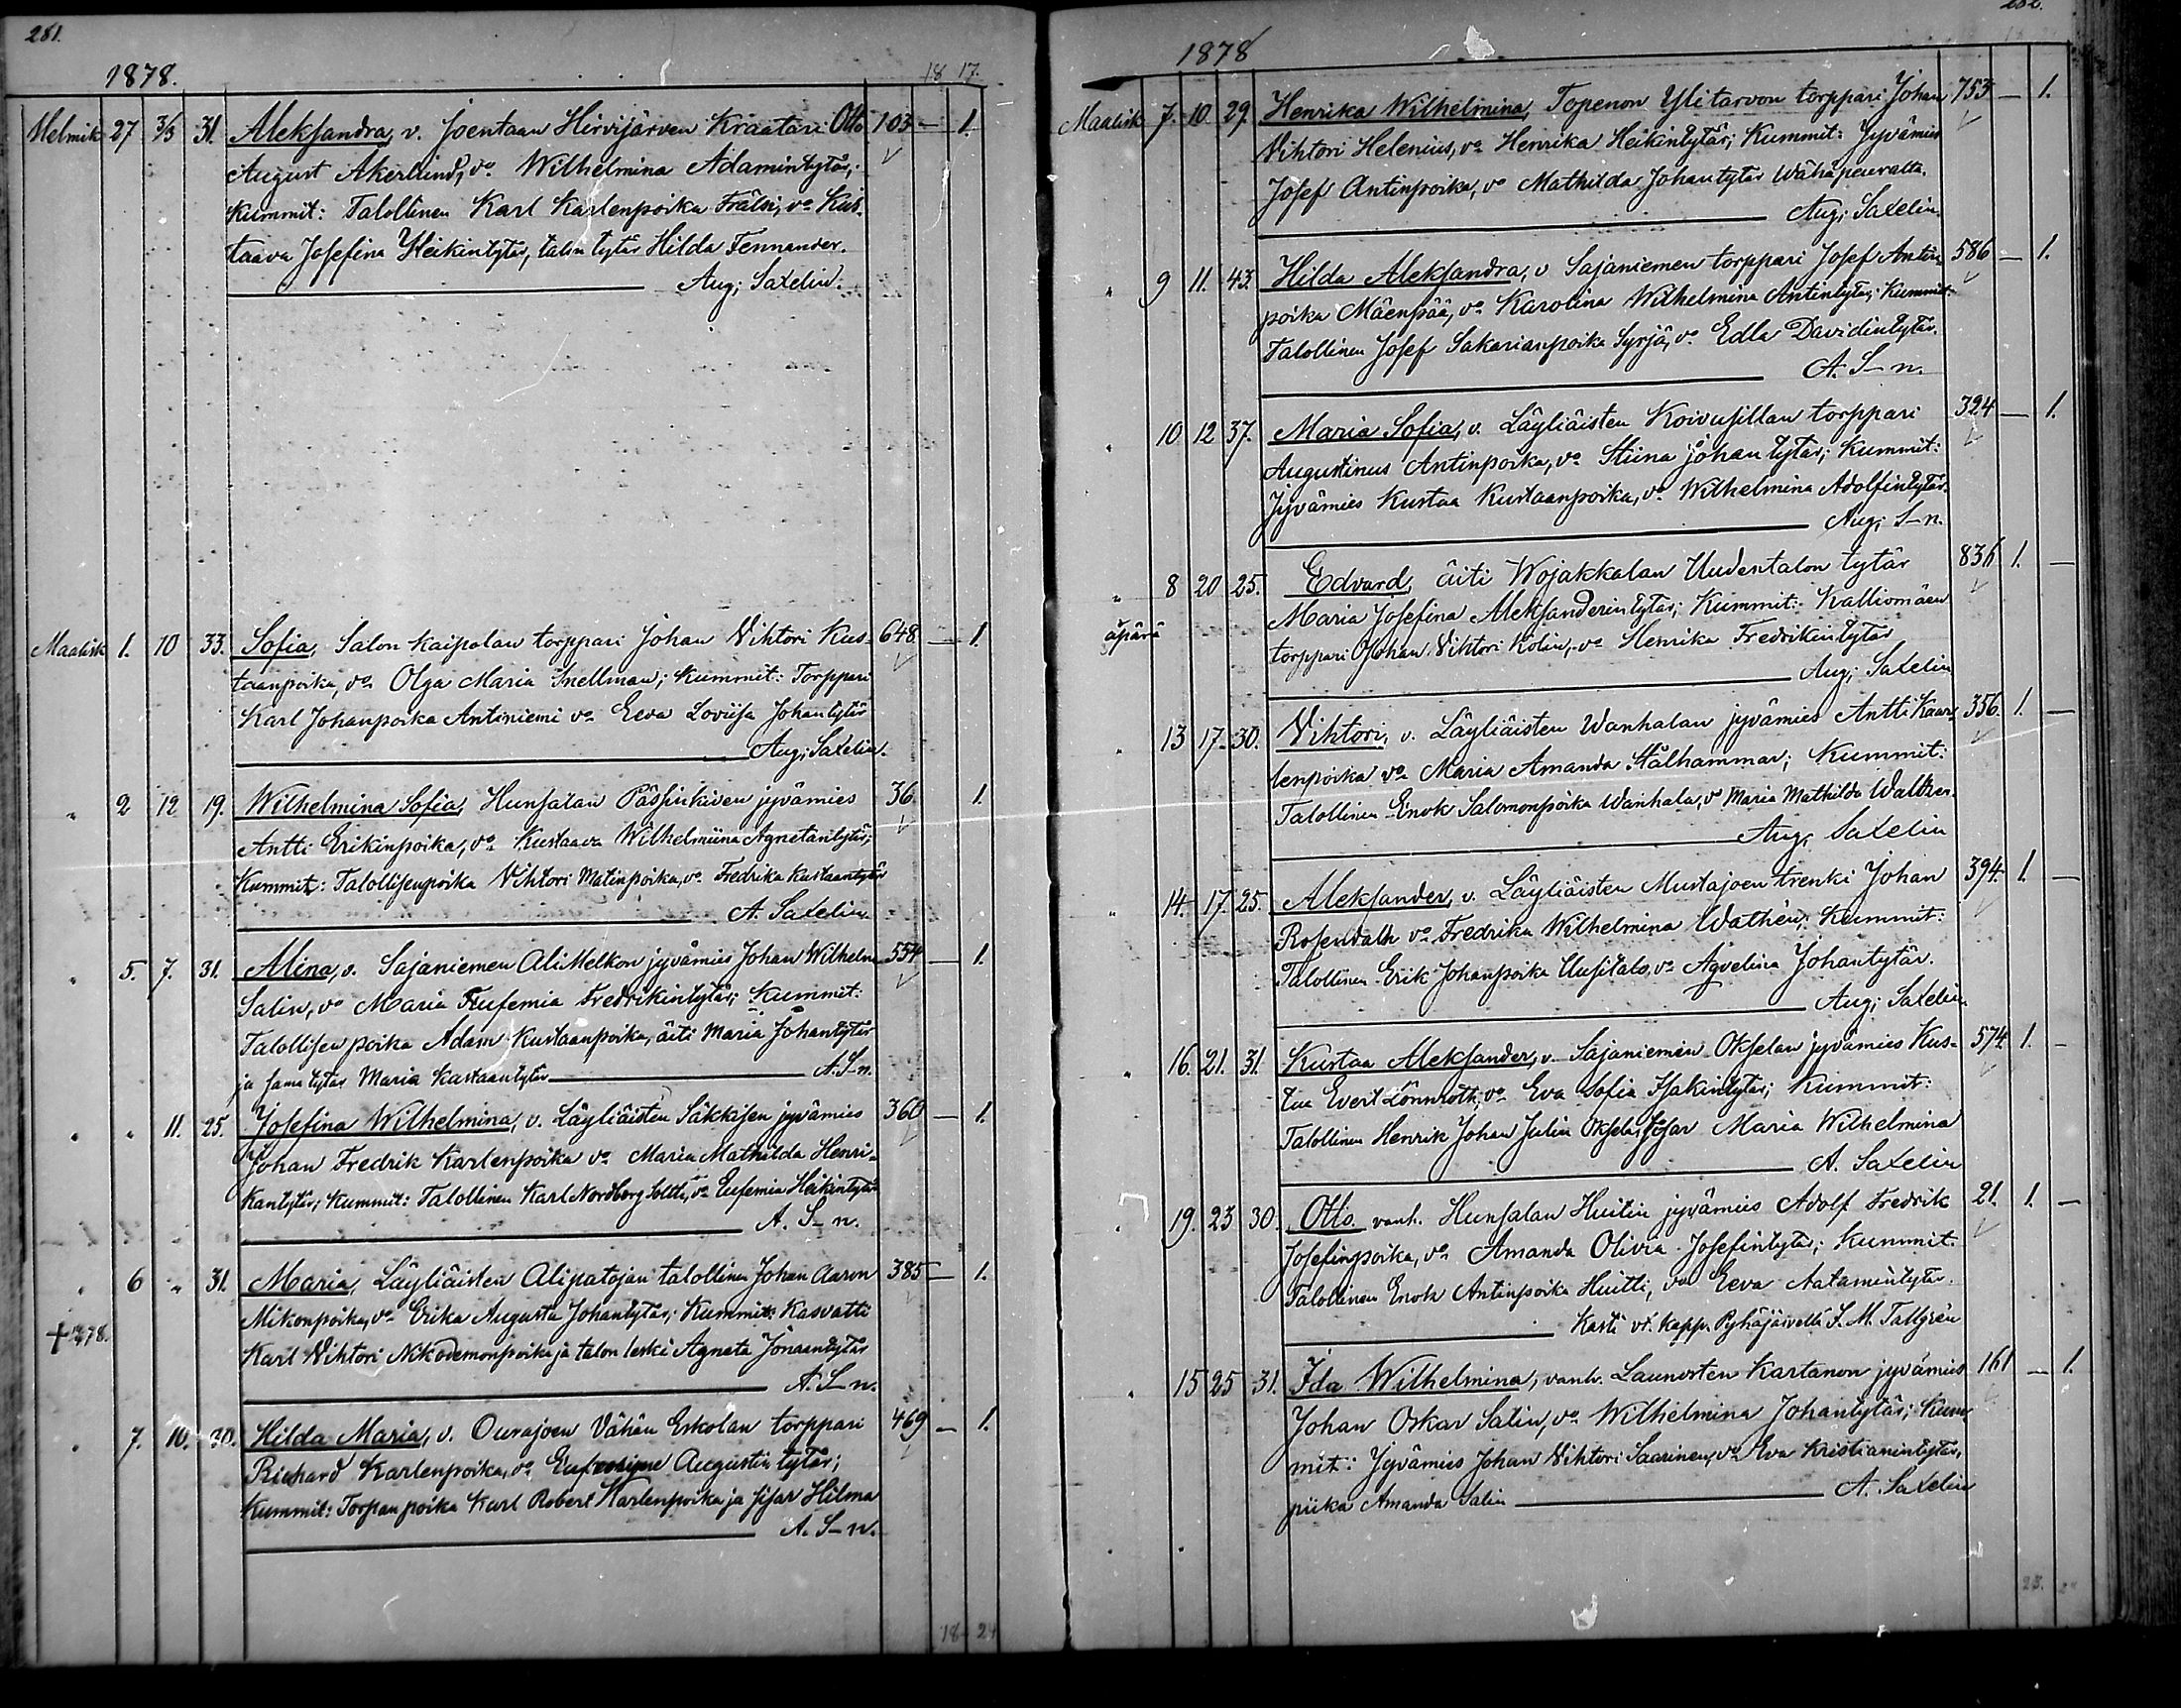 281.
1878.
18 17.
Helmik 27 3/3 31. Aleksandra, v. Joentaan Hirvijärven Kraatari Otto 103 — 1.
August Åkerlund, vo Wilhelmina Adamintytär;
Kummit: Talollinen Karl Karlenpoika Frälsi, vo Kus-
taava Josefina Heikintytär, talon tytär Hilda Fennander.
Aug; Saxelin.
Maalisk 1. 10 33. Sofia, Salon Kaipolan torppari Johan Vihtori Kus- 648 — 1.
taanpoika, vo Olga Maria Snellman; Kummit: Torppari
Karl Johanpoika Antiniemi vo Eeva Loviisa Johantytär
Aug; Saxelin.
" 2 12 19. Wilhelmina Sofia, Hunsalan Pässinkiven jyvämies 36. 1.
Antti Erikinpoika, vo Kustaava Wilhelmiina Agnetantytär;
Kummit: Talollisenpoika Vihtori Matinpoika, vo Fredrika Kustaantytär
A. Saxelin.
" 5. 7. 31. Alina, v. Sajaniemen AliMelkon jyvämies Johan Wilhelm 554 — 1.
Salin, vo Maria Eufemia Fredrikintytär; Kummit:
Talollisen poika Adam Kustaanpoika, äiti Maria Johantytär
ja sama tytär Maria Kustaantytär A. S–n.
" " 11. 25. Josefina Wilhelmina, v. Läyliäisten Säkkisen jyvämies 360 — 1.
Johan Fredrik Karlenpoika vo Maria Mathilda Henri-
kantytär; Kummit: Talollinen Karl Nordberg Solttila, vo Eufemia Heikintytär
A. S–n.
" 6 " 31. Maria, Läyliäisten Alipatojan talollinen Johan Aaron 385 — 1.
Mikonpoika, vo Erika Augusta Johantytär; Kummit: Kasvatti
† 1878. Karl Vihtori Nikodemonpoika ja talon leski Agneta Jonaantytär
A. S–n.
" 7. 10. 30. Hilda Maria, v. Ourajoen Vähän Eskolan torppari 469 — 1.
Richard Karlenpoika, vo Eufrosyne Augustin tytär;
Kummit: Torpan poika Karl Robert Karlenpoika ja sisar Hilma
A. S–n.
18 24
282.
1878
Maalisk 7. 10. 29. Henrika Wilhelmina, Topenon Ylitarvon torppari Johan 753 — 1.
Vihtori Helenius, vo Henrika Heikintytär; Kummit: Jyvämies
Josef Antinpoika, vo Mathilda Johantytär Wähäpeuralta.
Aug; Saxelin.
" 9 11. 43. Hilda Aleksandra, v Sajaniemen torppari Josef Antin- 586 — 1.
poika Mäenpää, vo Karolina Wilhelmina Antintytär; Kummit:
Talollinen Josef Sakarianpoika Syrjä, vo Edla Davidintytär.
A. S–n.
" 10 12 37. Maria Sofia, v. Läyliäisten Koivusillan torppari 324 — 1.
Augustinus Antinpoika, vo Stiina Johantytär; Kummit:
Jyvämies Kustaa Kustaanpoika, vo Wilhelmina Adolfintytär.
Aug; S–n.
" 8 20 25. Edvard, äiti Wojakkalan Uudentalon tytär 836 1. —
Maria Josefina Aleksanderintytär; Kummit: Kalliomäen
äpärä torppari Johan Vihtori Kolin, vo Henrika Fredrikintytär
Aug; Saxelin
" 13 17. 30. Vihtori, v. Läyliäisten Wanhalan jyvämies Antti Kaar- 356. 1. —
lenpoika vo Maria Amanda Stålhammar; Kummit:
Talollinen Enok Salomonpoika Wanhala, vo Maria Mathilda
Aug, Saxelin
" 14. 17. 25. Aleksander, v. Läyliäisten Mustajoen trenki Johan 394. 1. —
Rosendalh vo Fredrika Wilhelmina Wathén; Kummit:
Talollinen Erik Johanpoika Uusitalo, vo Agvelina Johantytär.
Aug; Saxelin
" 16. 21. 31. Kustaa Aleksander, v. Sajaniemen Okselan jyvämies Kus- 574. 1. —
taa Evert Lönnroth, vo Eva Sofia Isakintytär; Kummit:
Talollinen Henrik Johan Julin Oksela, sisar Maria Wilhelmina
A. Saxelin
" 19. 23 30. Otto vanh. Hunsalan Huitin jyvämies Adolf Fredrik 21. 1. —
Josefinpoika, vo Amanda Olivia Josefintytär; Kummit.
Talollinen Enok Antinpoika Huitti, vo Eeva Aatamintytär.
Kasti vt. kapp. Pyhäjärvellä F. M. Tallgrén
" 15 25 31. Ida Wilhelmina, vanh. Launosten Kartanon jyvämies 161 — 1.
Johan Oskar Salin, vo Wilhelmina Johantytär; Kum-
mit: Jyvämies Johan Vihtori Saarinen, vo Eva Kristianintytär,
piika Amanda Salin A. Saxelin
23.